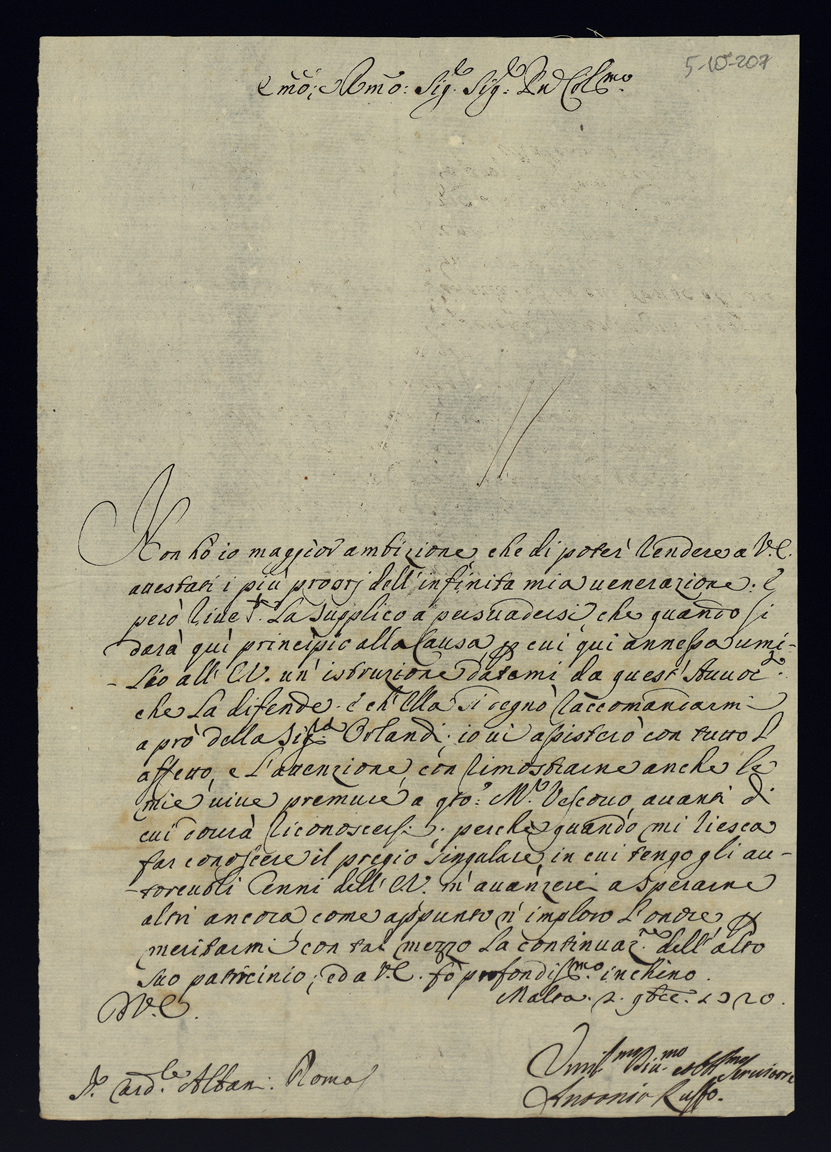 5-10-207
Emo: Rmo: Sig.r Sig.r Pad Colmo.
Non hò io maggior ambizione che di poter rendere a V.E.
attestati i più proprj dell'infinita mia uenerazione: E
però riuet.te La supplico a persuadersi che quando si
darà quì principio alla Causa p cui quì annessa umi-
-lio all'E.V. un'istruzione datami da quest'Auuoc.to
che La difende, e ch'Ella si degnò raccomandarmi
a prò della Sig.ra Orlandi, io ui assisterò con tutto l'
affetto, e l'attenzione, con rimostrarne anche le
mie uiue premure a qto. Mr. Vescouo, auanti di
cui dourà riconoscersi, perche quando mi riesca
far conoscere il pregio singulare in cui tengo gli au-
-toreuoli Cenni dell'E.V. m'auanzerei a sperarne
altri ancora come appunto n'imploro l'onore p
meritarmi con tal mezzo la continuaz.ne dell'alto
suo patricinio; ed a V.E. fò profondissmo. inchino.
Malta. 2. 9bre. 1720.
D V.E.
Sr. Card.le Albani. Roma
Umilmo Diumo et Obbmo Seruitore
Antonio Ruffo.